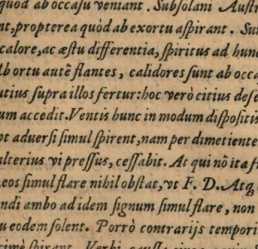 quòd ab occasu veniant. Subsolani Austr
nt, propterea quòd ab exortu aspirant. Su
calore, ac æstu differentia, spiritus ad hunc
Ab ortu autẽ flantes, calidores sunt ab occa
utius supra illos fertur: hoc verò citius dese
um accedit. Ventis hunc in modum dispositis
ot aduersi simul spirent, nam per dimetiente
alterius vi pressus, cessabit. At qui nõ ita s
eos simul flare nihil obstat, vt F. D. Atq
ndi ambo ad idem signum simul flare, non
u eodem solent. Porrò contrarijs tempori
spirant. Verbi